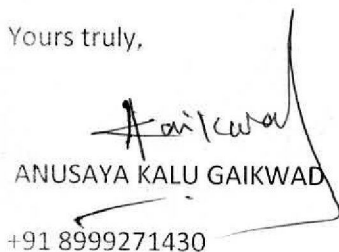 Yours truly,
Gaikwad
ANUSAYA KALU GAIKWAD
+91 8999271430